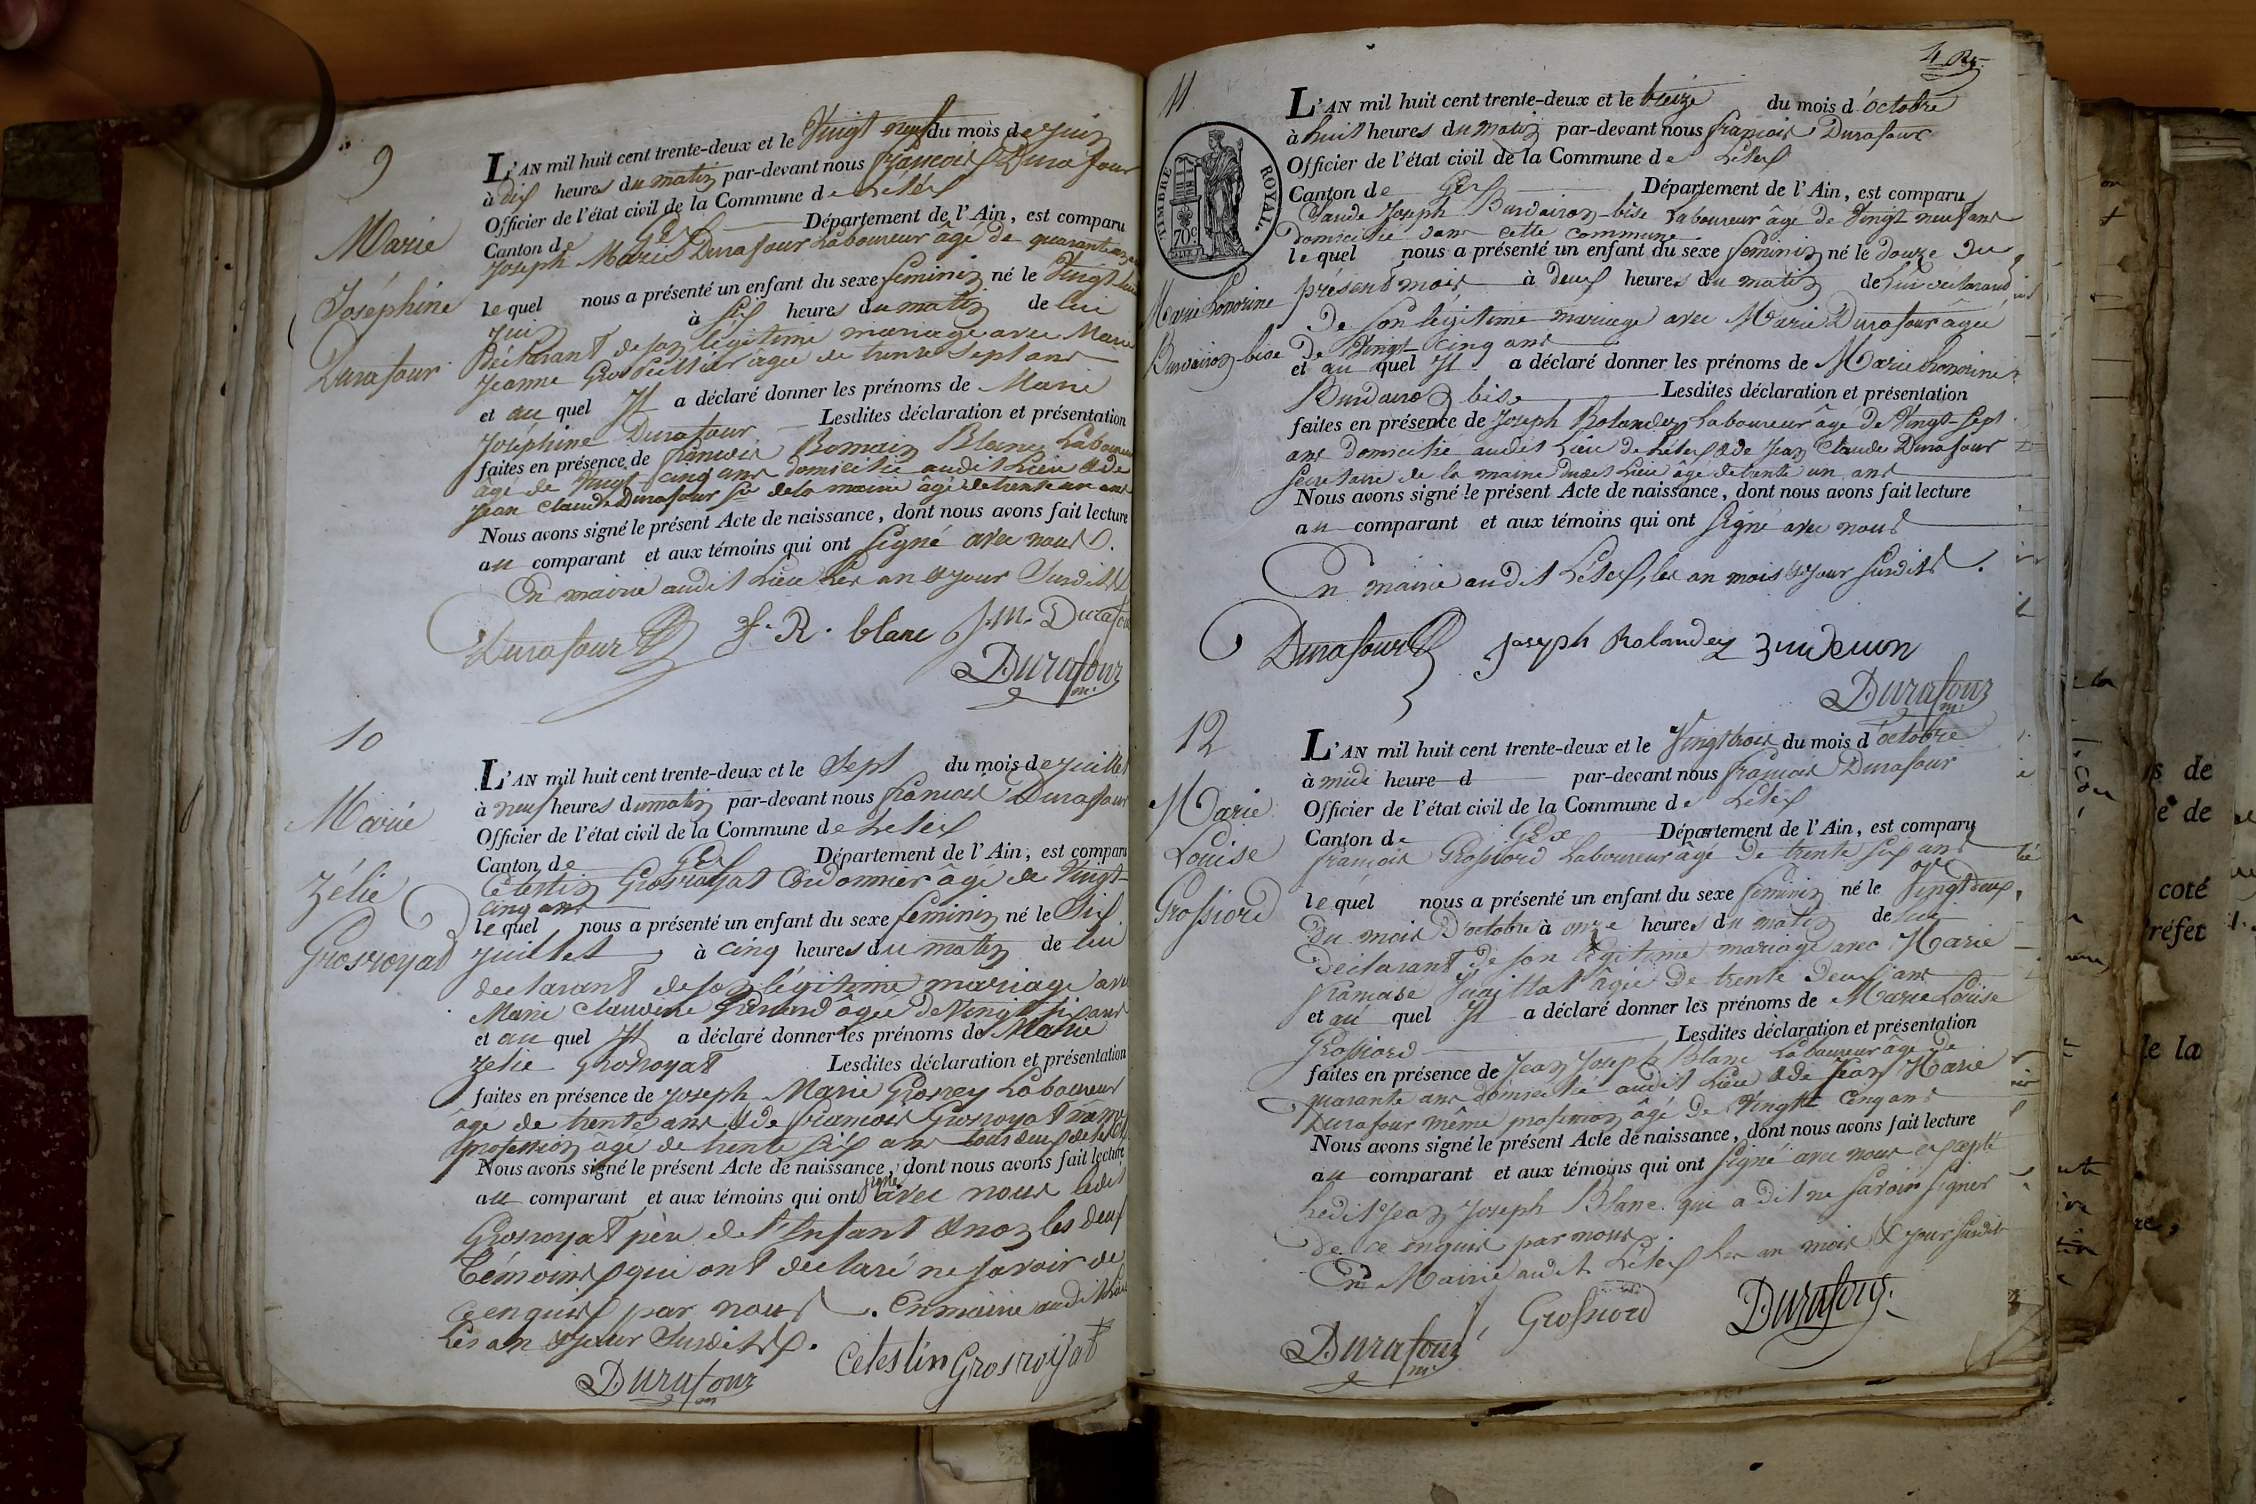 9
Marie
Joséphine
Durafour
L'AN mil huit cent trente-deux et le Vingt neuf du mois de juin
à dix heures du matin par-devant nous François Durafour
Officier de l'état civil de la Commune de Lélex
Canton de Gex Département de l'Ain, est comparu
Joseph Marie Durafour Laboureur âgé de quarante
lequel nous a présenté un enfant du sexe feminin né le Vingt huit
juin à six heures du matin de lui
déclarant de son légitime mariage avec Marie
Jeanne âgée de trente sept ans
et au quel Il a déclaré donner les prénoms de Marie
Joséphine Durafour Lesdites déclaration et présentation
faites en présence de François Romain Blanc Laboureur
âgé de Vingt-cinq ans domicilié audit Lieu & de
Jean Claude Durafour Sre de la mairie âgé de trente un ans
Nous avons signé le présent Acte de naissance, dont nous avons fait lecture
au comparant et aux témoins qui ont signé avec nous.
En mairie audit Lieu Les an & jour Susdits
Durafour F. R. blanc J. M. Durafour
Durafour
10
Marie
Zélie
Grosroyat
L'AN mil huit cent trente-deux et le Sept du mois de juillet
à neuf heures du matin par-devant nous François Durafour
Officier de l'état civil de la Commune de Lélex
Canton de Gex Département de l'Ain, est comparu
Célestin Grosroyat Cordonnier âgé de Vingt-
cinq ans
lequel nous a présenté un enfant du sexe feminin né le Six
juillet à cinq heures du matin de lui
déclarant de son légitime mariage avec
Marie Claudine âgée de Vingt six ans
et au quel Il a déclaré donner les prénoms de Marie
Zélie Grosroyat Lesdites déclaration et présentation
faites en présence de Joseph Marie Grosrey Laboureur
âgé de trente ans & de François Grosroyat même
profession âgé de trente six ans tous deux de Lélex
Nous avons signé le présent Acte de naissance, dont nous avons fait lecture
au comparant et aux témoins qui ont signé avec nous ledit
Grosroyat père de l'Enfant & non les deux
témoins qui ont déclaré ne savoir de
ce enquis par nous. En mairie audit Lieu
Les an & jour Susdits.
Durafour Celestin Grosroyat
4
11
TIMBRE ROYAL
70c
Marie honorine
Burdairon-bise
L'AN mil huit cent trente-deux et le treize du mois d'octobre
à huit heures du matin par-devant nous François Durafour
Officier de l'état civil de la Commune de Lélex
Canton de Gex Département de l'Ain, est comparu
Claude Joseph Burdairon-bise Laboureur âgé de Vingt neuf ans
domicilié dans cette commune
lequel nous a présenté un enfant du sexe feminin né le douze du
présent mois à deux heures du matin de lui déclarant
de son légitime mariage avec Marie Durafour âgée
de Vingt-cinq ans
et au quel Il a déclaré donner les prénoms de Marie honorine
Burdairon bise Lesdites déclaration et présentation
faites en présence de Joseph Rolandez Laboureur âgé de Vingt-sept
ans domicilié audit Lieu de Lélex & de Jean Claude Durafour
Secrétaire de la mairie dudit Lieu âgé de trente un ans
Nous avons signé le présent Acte de naissance, dont nous avons fait lecture
au comparant et aux témoins qui ont signé avec nous
En mairie audit Lélex, les an mois & jour susdits.
Durafour Joseph Rolandez
Durafour
12
Marie
Louise
Grossiord
L'AN mil huit cent trente-deux et le Vingt trois du mois d'octobre
à midi heure d par-devant nous François Durafour
Officier de l'état civil de la Commune de Lélex
Canton de Gex Département de l'Ain, est comparu
François Grossiord Laboureur âgé de trente six ans
lequel nous a présenté un enfant du sexe feminin né le Vingt deux
du mois d'octobre à onze heures du matin de lui
déclarant de son légitime mariage avec Marie
Françoise Juaillat âgée de trente deux ans
et au quel Il a déclaré donner les prénoms de Marie Louise
Grossiord Lesdites déclaration et présentation
faites en présence de Jean Joseph Blanc Laboureur âgé de
quarante ans domicilié audit Lieu & de Jean Marie
Durafour même profession âgé de Vingt cinq ans
Nous avons signé le présent Acte de naissance, dont nous avons fait lecture
au comparant et aux témoins qui ont signé avec nous excepté
Ledit Jean Joseph Blanc qui a dit ne savoir signer
de ce enquis par nous
En Mairie audit Lélex Les an mois & jour susdit
Durafour Grossiord Durafour